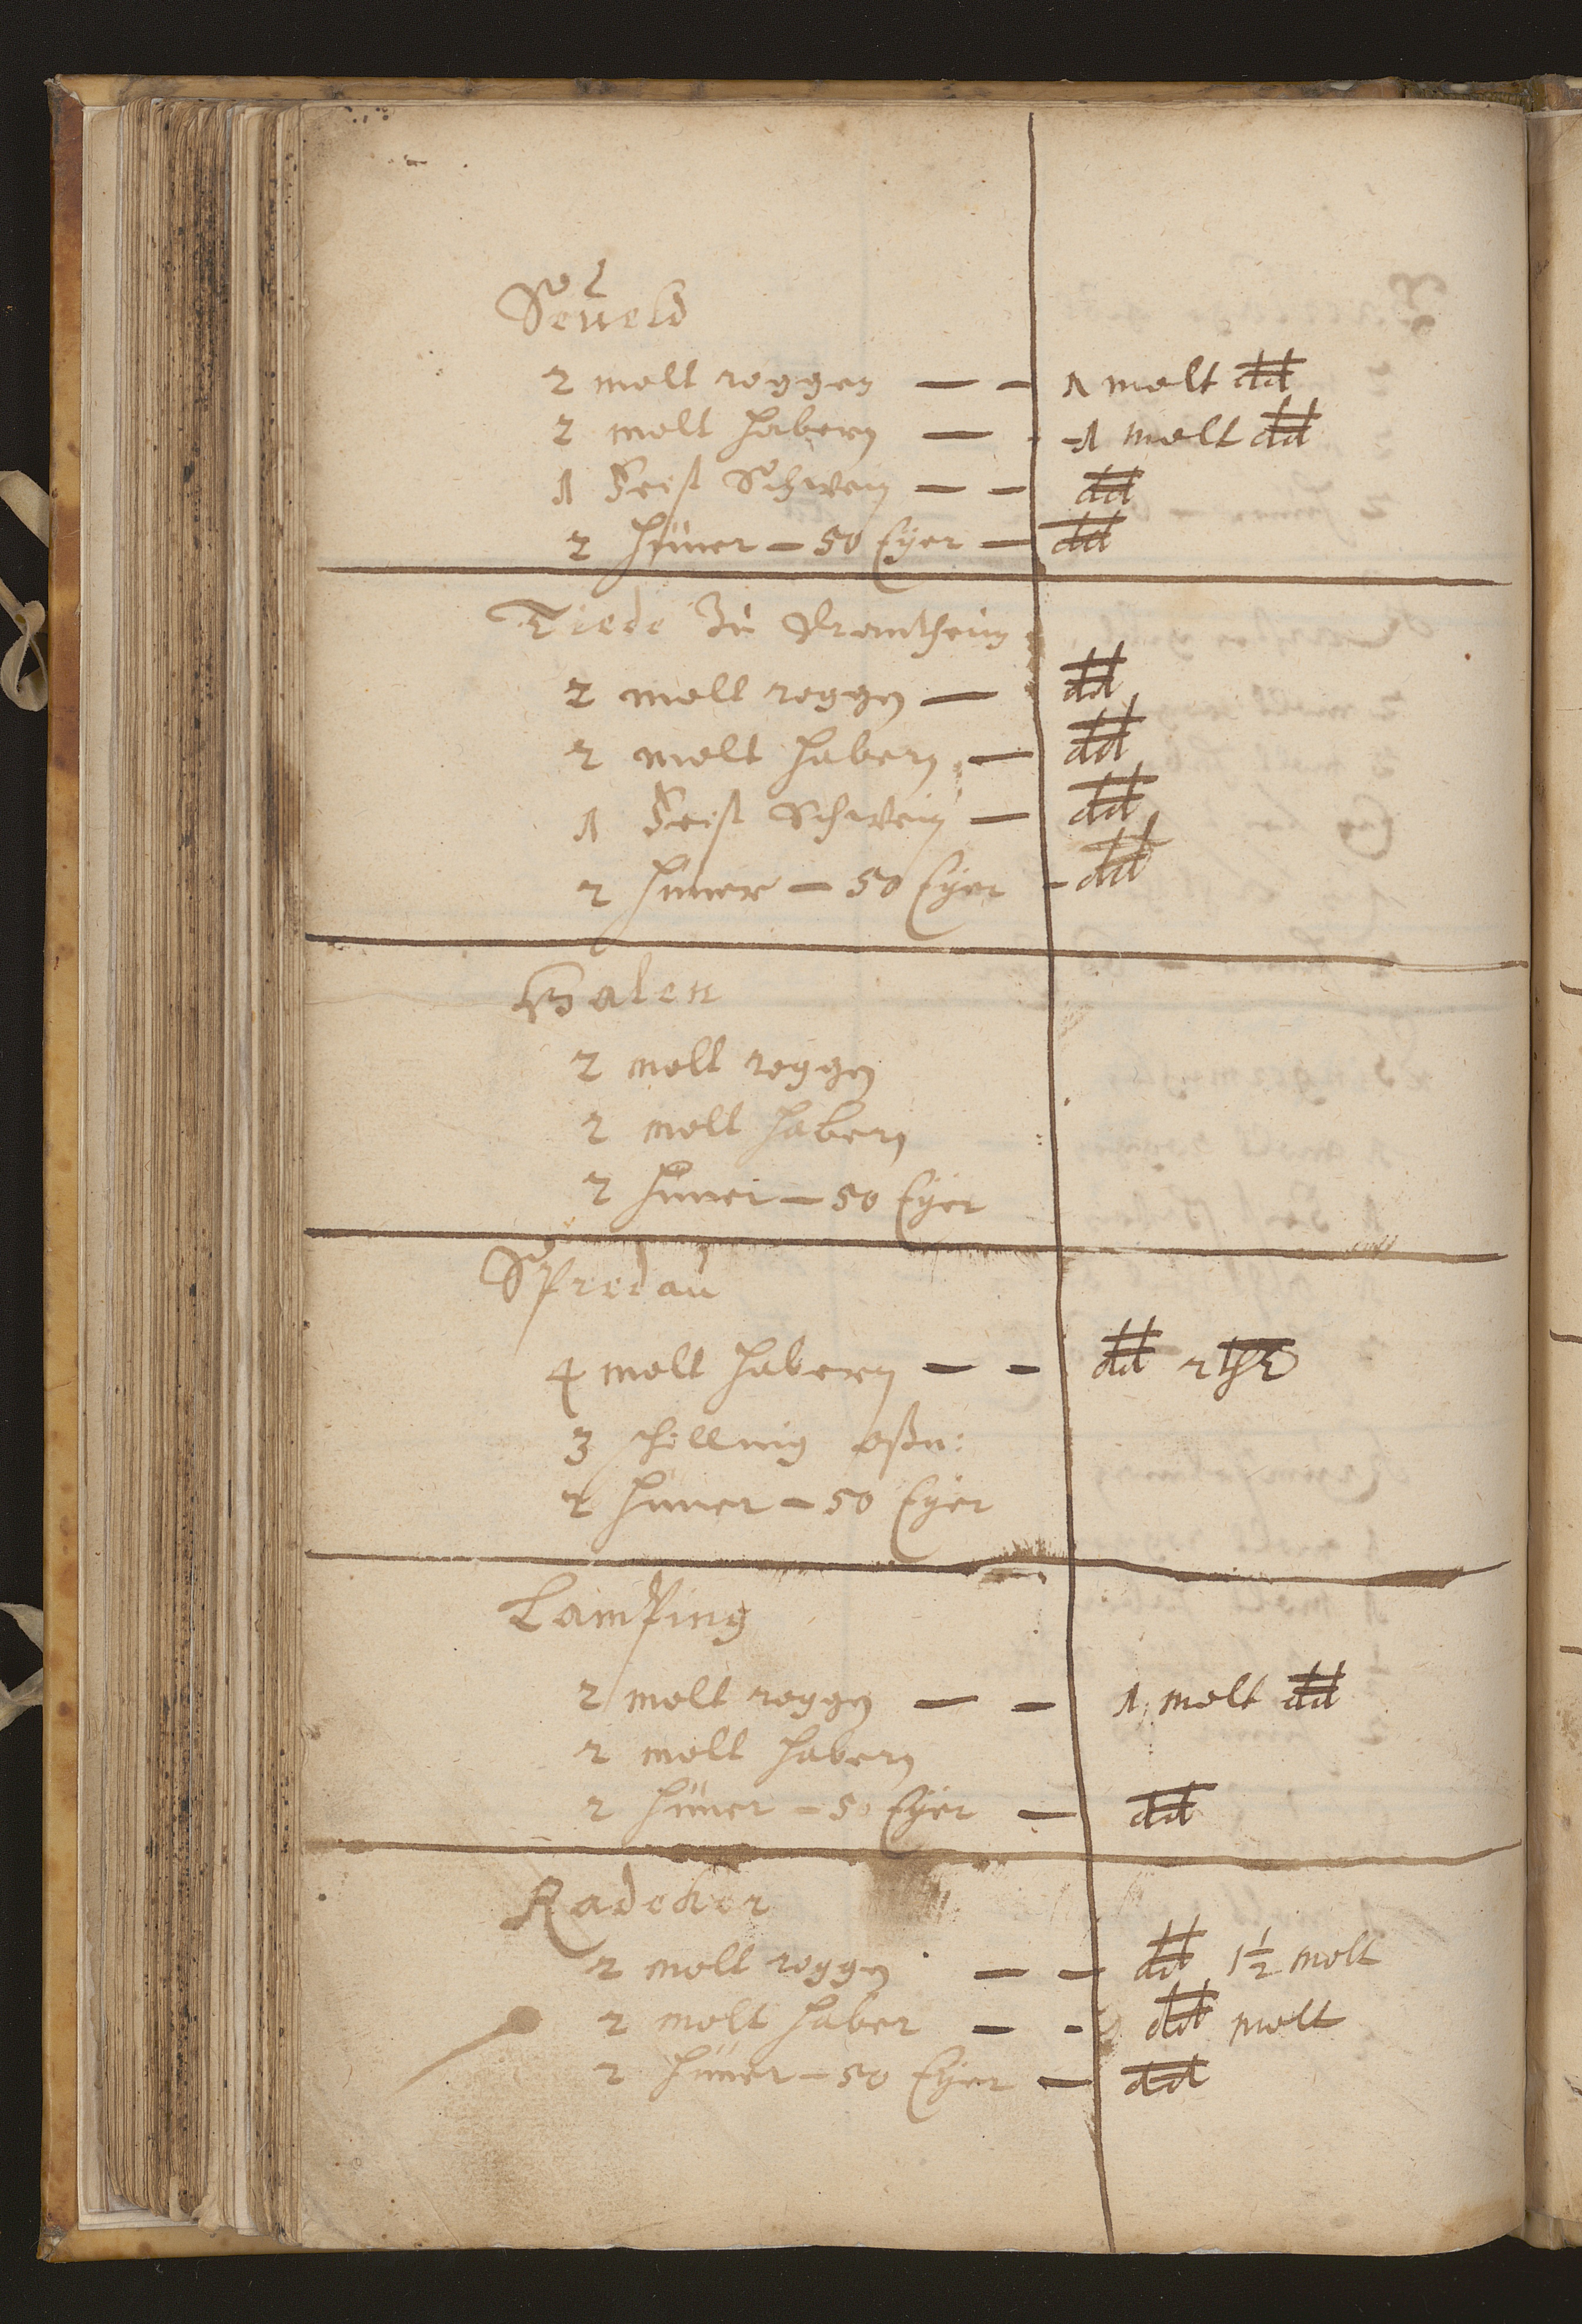 Seueld
2 molt roggen — — 1 molt dd
2 molt habern — - 1 molt dd
1 Feist Schwein — — dd
2 Hüner — 50 Eyer — dd
Tiede Zu
2 molt roggen — dd
2 molt habern — dd
1 Feist Schwein — dd
2 Hüner — 50 Eyer - dd
Galen
2 molt roggen
2 molt habern
2 Hüner — 50 Eyer
Spredau
4 molt habern — — dd 2
3 schilling oßn:
2 Hüner — 50 Eyer
Lamping
2 molt roggen — — 1 molt dd
2 molt habern
2 Hüner — 50 Eyer — dd
Radeker
2 molt roggen — — dd 1½ molt
2 molt haber — - dd molt
2 Hüner — 50 Eyer — dd